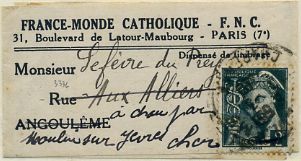 FRANCE-MONDE CATHOLIQUE - F. N. C.
31, Boulevard de Latour-Maubourg - PARIS (7e)
Dispensé de timbrage
Monsieur Lefèvre du Prey
Rue Aux Alliers
à champar
ANGOULÊME
Moulins sur Yèvre Cher